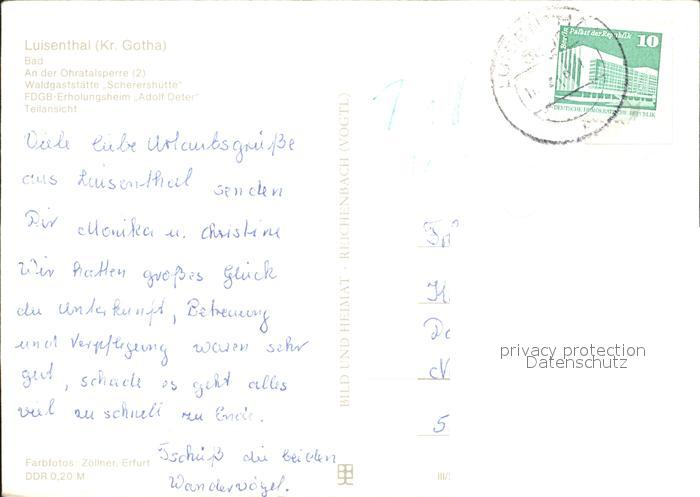 Luisenthal (Kr. Gotha)
Bad
An der Ohratalsperre (2)
Waldgaststätte „Scherershütte"
FDGB-Erholungsheim „Adolf Deter"
Teilansicht
Viele liebe Urlaubsgrüße
aus Luisenthal senden
Dir Monika u. Christine
Wir hatten großes Glück
die Unterkunft, Betreuung
und Verpflegung waren sehr
gut, schade es geht alles
viel zu schnell zu Ende.
Tschüß die beiden
Wandervögel.
Farbfotos: Zöllner, Erfurt
DDR 0,20 M
BILD UND HEIMAT · REICHENBACH (VOGTL)
III/
Berlin, Palast der Republik
10
DEUTSCHE DEMOKRATISCHE REPUBLIK
privacy protection
Datenschutz